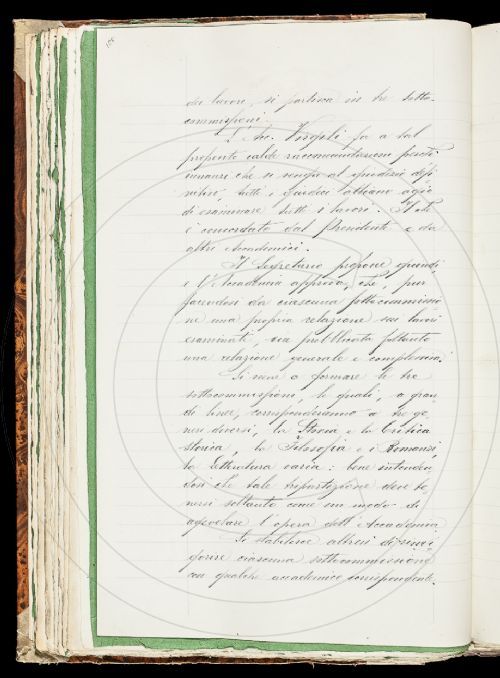 108
dei lavori, si partisca in tre sotto-
commissioni.
L'Acc. Virgili fa a tal
proposito calde raccomandazioni perché
innanzi che si venga al giudizio defi
nitivo, tutti i giudici abbiano agio
di esaminare tutti i lavori. Il che
è concordato dal Presidente e da
altri Accademici.
Il Segretario propone quindi
e l'Accademia approva, che, pur
facendosi da ciascuna sottocommissio
ne una propria relazione sui lavori
esaminati, sia pubblicata soltanto
una relazione generale e complessiva.
Si viene a formare le tre
sottocommissioni, le quali, a gran
di linee, corrisponderanno a tre ge
neri diversi, la Storia e la Critica
storica, la Filosofia e i Romanzi,
la letteratura varia: bene intenden
dosi che tale tripartizione deve te
nersi soltanto come un modo di
agevolare l'opera dell'Accademia.
Si stabilisce altresì di
ciascuna sottocommissione
con qualche accademico corrispondente.